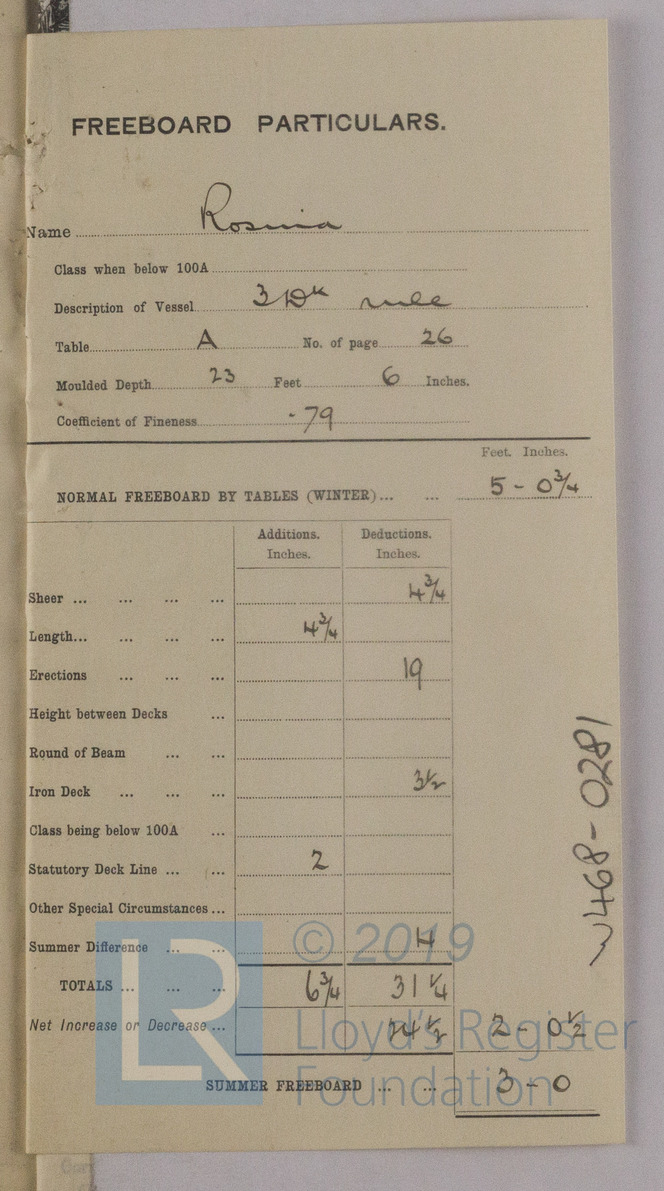 FREEBOARD PARTICULARS.
Name Rosina
Class when below 100A
Description of Vessel 3 Dk rule
Table A No. of page 26
Moulded Depth 23 Feet 6 Inches.
Coefficient of Fineness .79
Feet. Inches.
NORMAL FREEBOARD BY TABLES (WINTER) ... ... 5 - 0 3/4
Additions. Deductions.
Inches. Inches.
Sheer ... ... ... ... 4 3/4
Length ... ... ... ... 4 3/4
Erections ... ... ... 19
Height between Decks ...
Round of Beam ... ...
Iron Deck ... ... ... 3 1/2
Class being below 100A ...
Statutory Deck Line ... ... 2
Other Special Circumstances ...
Summer Difference ... ... 4
TOTALS ... ... ... 6 3/4 31 1/4
Net Increase or Decrease ... 24 1/2 2 - 0 1/2
SUMMER FREEBOARD ... ... 3 - 0
W468-0281
© 2019
Lloyd's Register
Foundation
LR